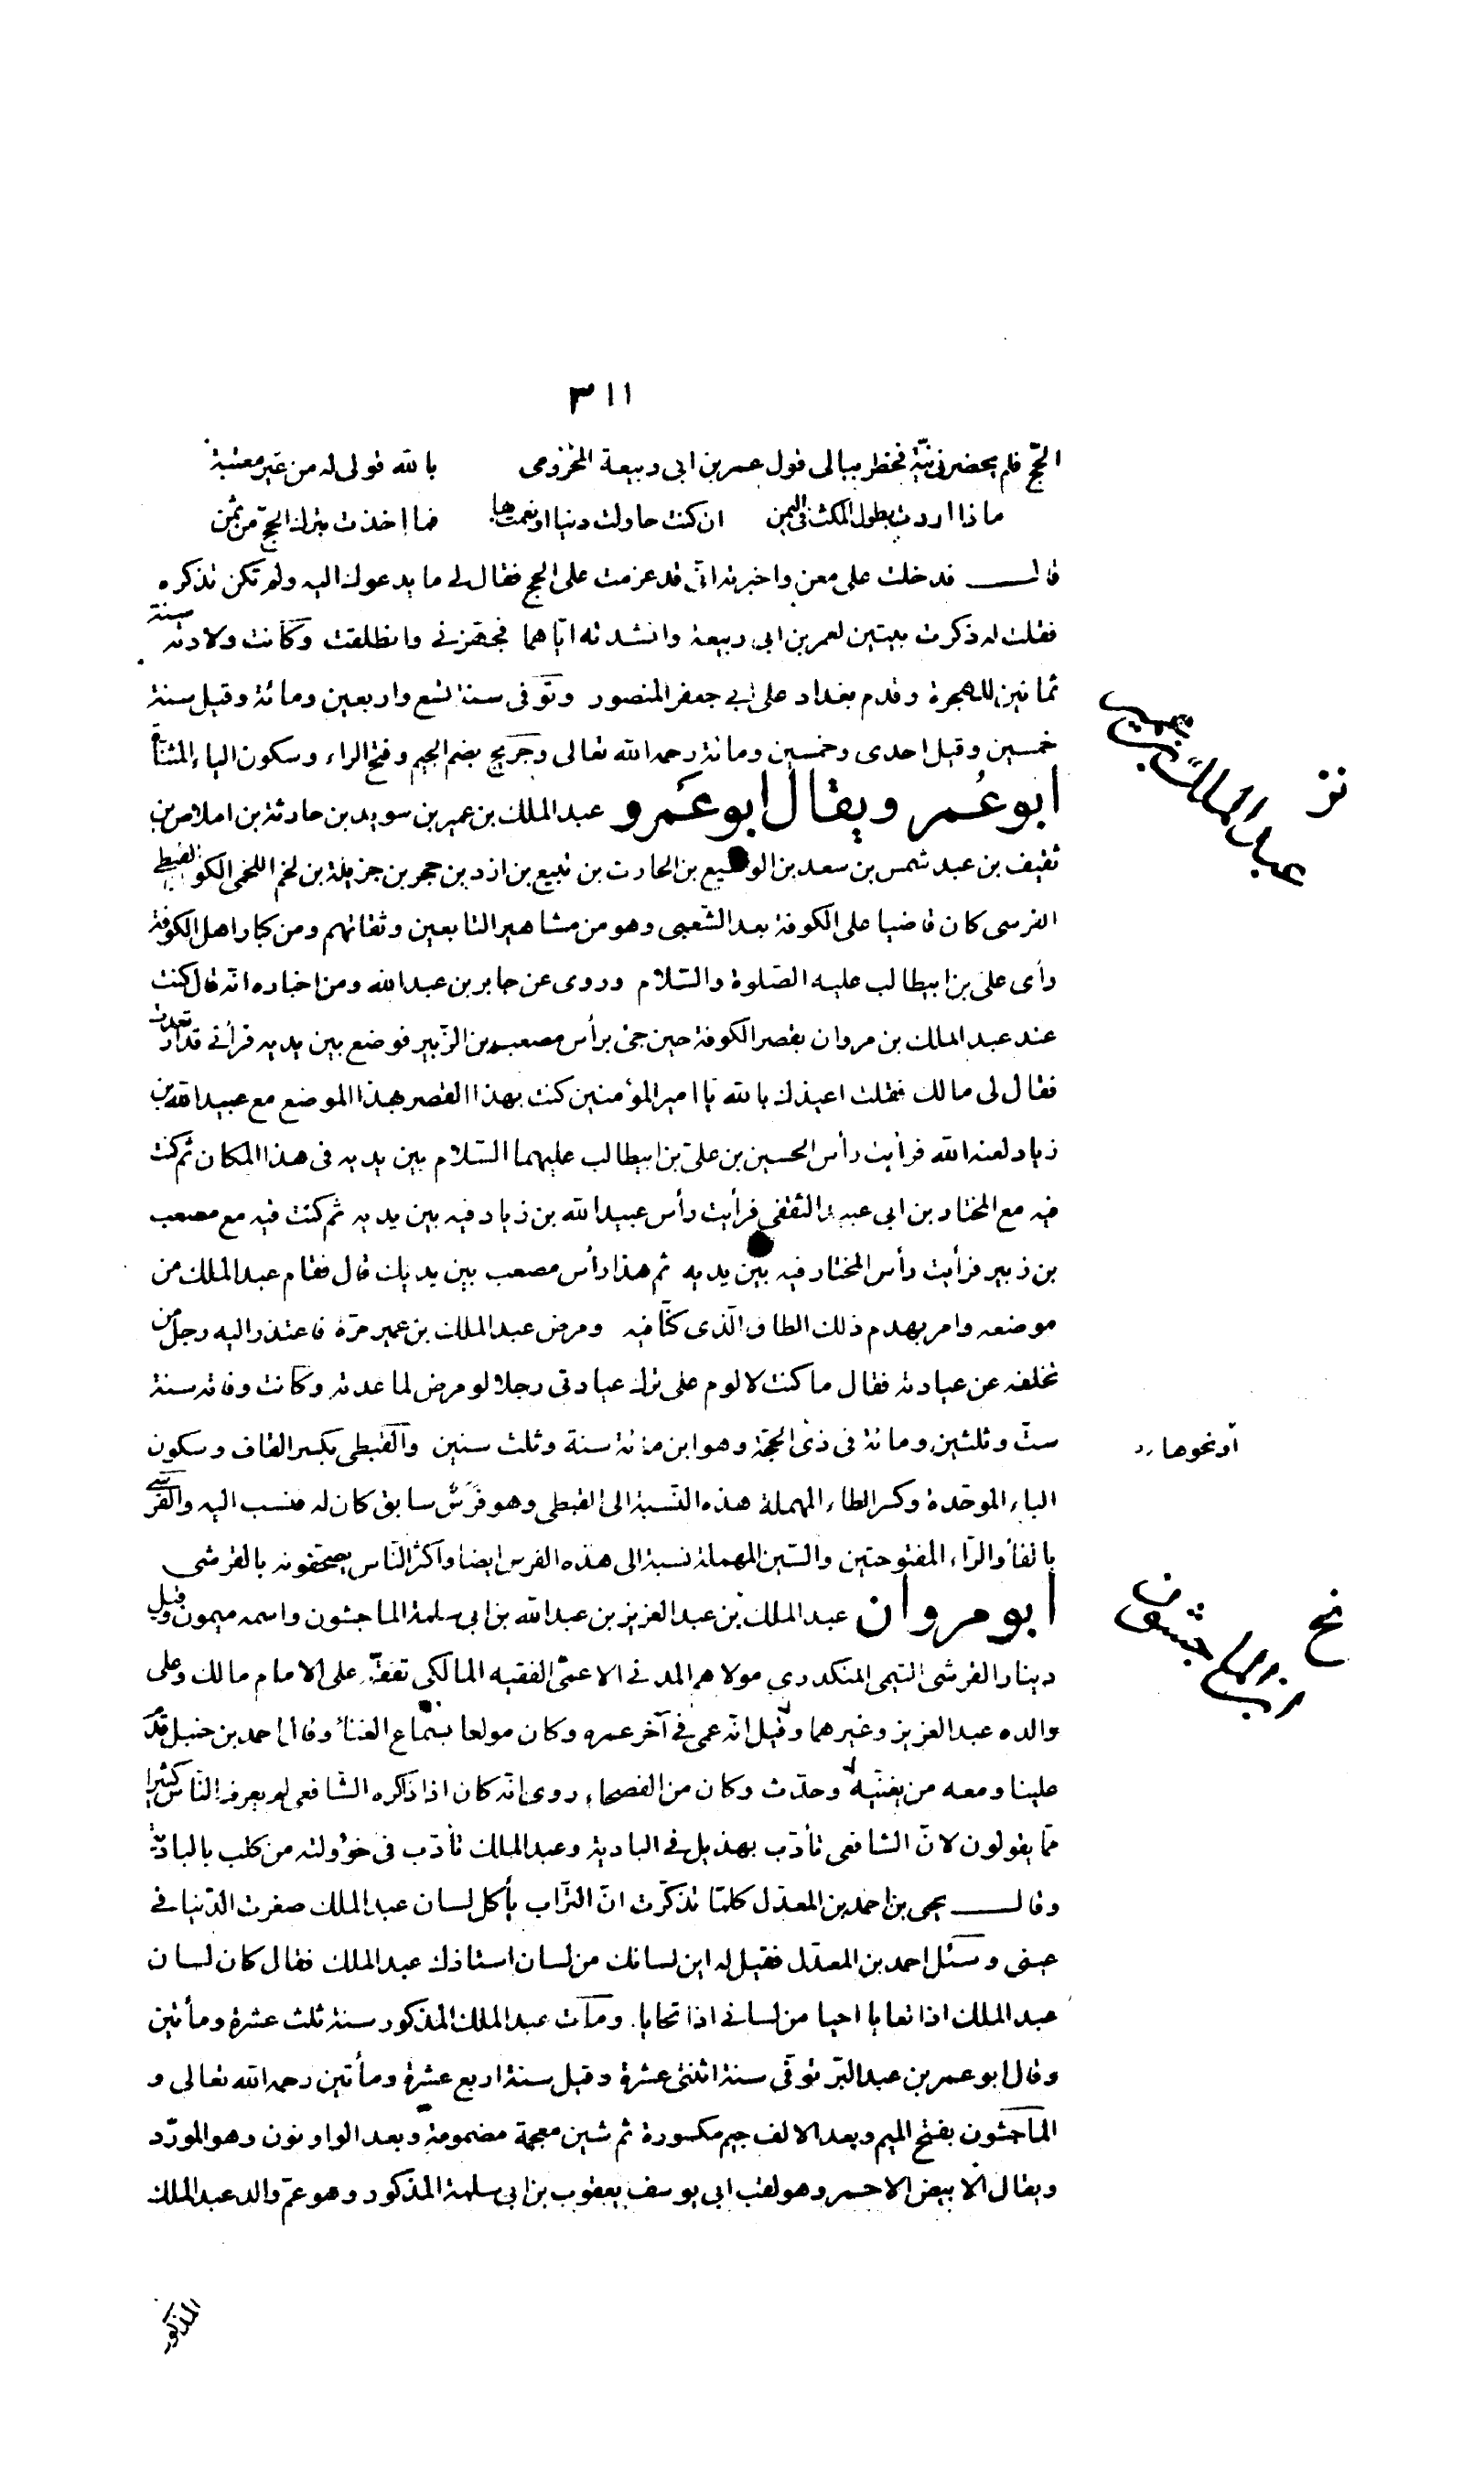 ٣١١
الحجّ فلم يحضرنى نيّة فخطر ببالى قول عمر بن ابى ربيعة المخزومى بالله قولى له من غير معتبة
ماذا اردت بطول المكث فى اليمن ان كنت حاولت دنيا او نعمت بها فما اخذت بترك الحجّ من ثمن
قال فدخلت على معن واخبرته انّى قد عزمت على الحج فقال لى ما يدعوك اليه ولم تكن تذكره
فقلت له ذكرت بيتين لعمر بن ابى ربيعة وانشدته ايّاهما فجهّزنى وانطلقت وكانت ولادته سنة
ثمانين للهجرة وقدم بغداد على ابى جعفر المنصور وتوفى سنة تسع واربعين ومائة وقيل سنة
خمسين وقيل احدى وخمسين ومائة رحمه الله تعالى وجريج بضم الجيم وفتح الراء وسكون الياء المثنّاة
ابو عُمر ويقال ابو عَمرو عبد الملك بن عمير بن سويد بن حارثة بن املاص بن
ثقيف بن عبد شمس بن سعد بن الوسيع بن الحارث بن يثيع بن ازد بن حجر بن جزيلة بن لخم اللخمى الكوفى القبطى
الفرسى كان قاضيا على الكوفة بعد الشّعبى وهو من مشاهير التابعين وثقاتهم ومن كبار اهل الكوفة
رأى على بن ابيطالب عليه الصّلوة والسّلام وروى عن جابر بن عبد الله ومن اخباره انّه قال كنت
عند عبد الملك بن مروان بقصر الكوفة حين جئ برأس مصعب بن الزّبير فوضع بين يديه فرأنى قد ارتعدت
فقال لى مالك فقلت اعيذك بالله يا امير المؤمنين كنت بهذا القصر بهذا الموضع مع عبيد الله بن
زياد لعنه الله فرأيت رأس الحسين بن علىّ بن ابيطالب عليهما السّلام بين يديه فى هذا المكان ثم كنت
فيه مع المختار بن ابى عبيد الثقفى فرأيت رأس عبيد الله بن زياد فيه بين يديه ثم كنت فيه مع مصعب
بن زبير فرأيت رأس المختار فيه بين يديه ثم هذا رأس مصعب بين يديك قال فقام عبد الملك من
موضعه وامر بهدم ذلك الطاق الّذى كنّا فيه ومرض عبد الملك بن عمير مرّة فاعتذر اليه رجل من
تخلفه عن عيادته فقال ما كنت لالوم على ترك عيادتى رجلا لو مرض لما عدته وكانت وفاته سنة
ستّ وثلثين ومائة فى ذى الحجّة وهو ابن مائة سنة وثلث سنين والقبطى بكسر القاف وسكون
الباء الموحّدة وكسر الطاء المهملة هذه النّسبة الى القبطى وهو فَرَسٌ سابق كان له فنسب اليه والفرسى
بالفاء والرّاء المفتوحتين والسّين المهملة نسبة الى هذه الفرس ايضا واكثر النّاس يصحّفونه بالقرشى
ابو مروان عبد الملك بن عبد العزيز بن عبد الله بن ابى سلمة الماجشون واسمه ميمون وقيل
دينار القرشى التيمى المنكدرى مولاهم المدنى الاعمى الفقيه المالكى تفقّه على الامام مالك وعلى
والده عبد العزيز وغيرهما وقيل انّه عمى فى آخر عمره وكان مولعا بسماع الغناء وقال احمد بن حنبل قدم
علينا ومعه من يغنّيه وحدّث وكان من الفصحاء روى انّه كان اذا ذاكره الشّافعى لم يعرف النّاس كثيرا
ممّا يقولون لانّ الشافعى تأدّب بهذيل فى البادية وعبد الملك تأدّب فى خؤولته من كلب بالبادية
وقال يحيى بن احمد بن المعذّل كلّما تذكّرت انّ التّراب يأكل لسان عبد الملك صغرت الدّنيا فى
عينى وسئل احمد بن المعذّل فقيل له اين لسانك من لسان استاذك عبد الملك فقال كان لسان
عبد الملك اذا تعايا احيا من لسانى اذا تحايا ومات عبد الملك المذكور سنة ثلث عشرة ومأتين
وقال ابو عمر بن عبد البرّ توفّى سنة اثنتى عشرة وقيل سنة اربع عشرة ومأتين رحمه الله تعالى و
الماجشون بفتح الميم وبعد الالف جيم مكسورة ثم شين معجمة مضمومة وبعد الواو نون وهو المورّد
ويقال الابيض الاحمر وهو لقب ابى يوسف يعقوب بن ابى سلمة المذكور وهو عمّ والد عبد الملك
المذكور
نز
عبد الملك بن عمير
او نحوها
نح
ابن الماجشون